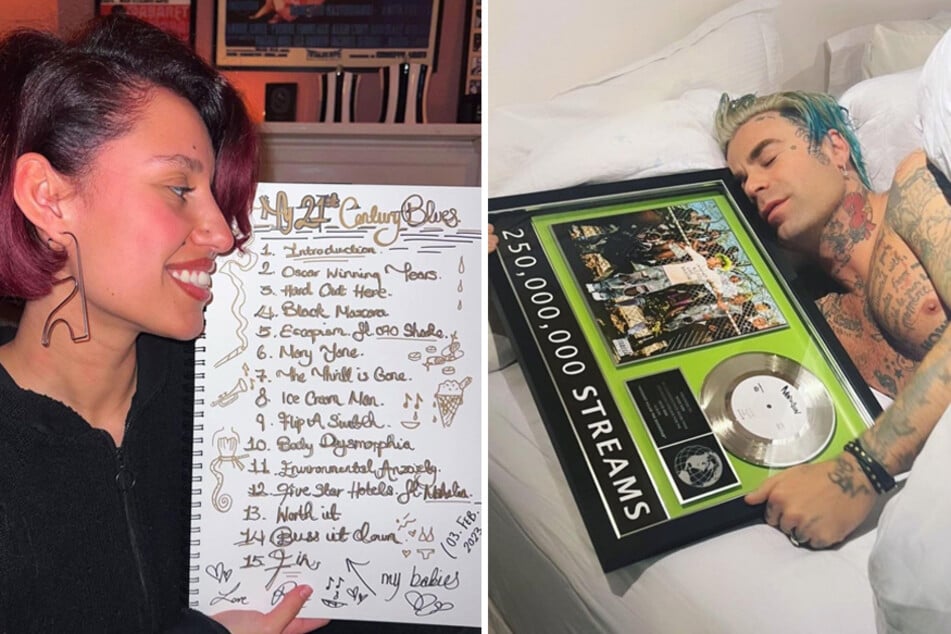 My 21st Century Blues
1. Introduction.
2. Oscar Winning Tears.
3. Hard Out Here.
4. Black Mascara.
5. Escapism. ft. 070 Shake.
6. Mary Jane.
7. The Thrill is Gone.
8. Ice Cream Man.
9. Flip A Switch.
10. Body Dysmorphia.
11. Environmental Anxiety.
12. Five Star Hotels ft Mahalia.
13. Worth it
14. Buss it down
15. Fin.
(03. FEB. 2023
my babies
Love
250,000,000 STREAMS